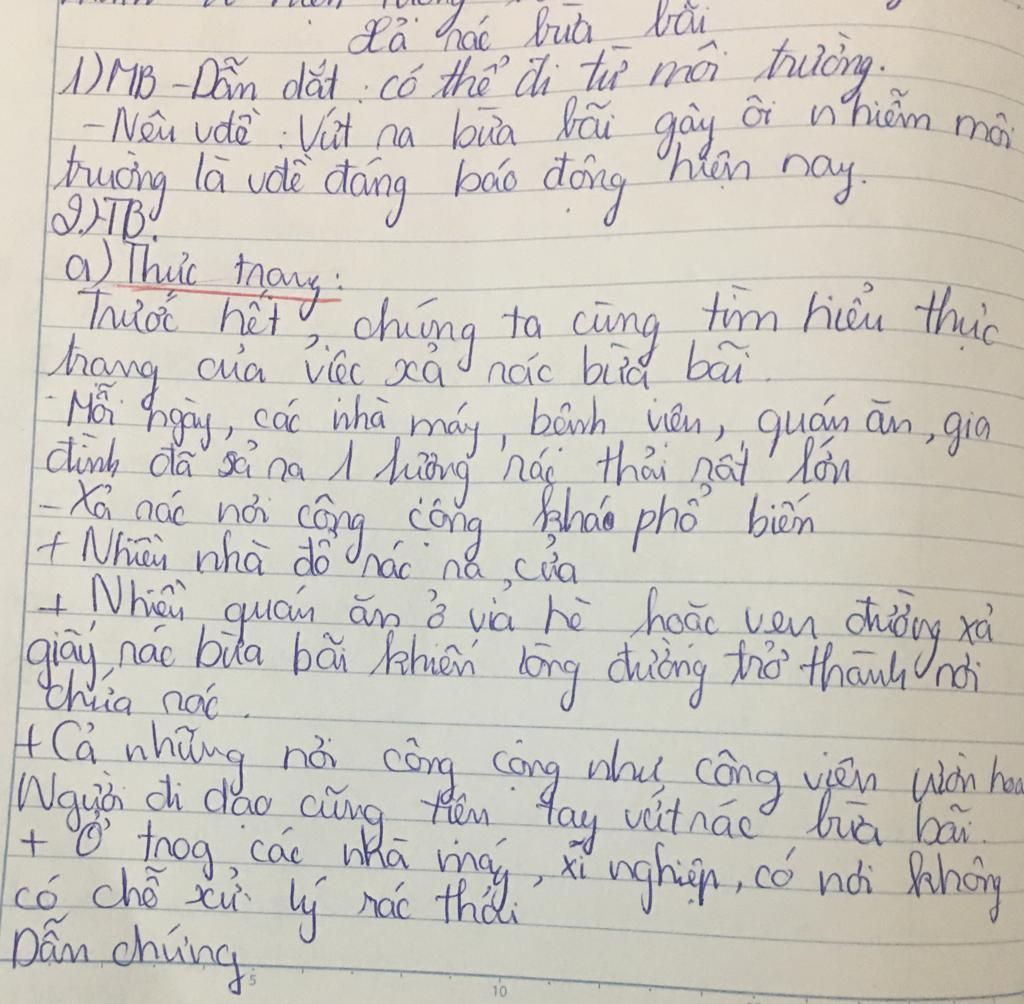 Xả rác bừa bãi
1) MB - Dẫn dắt : có thể đi từ môi trường.
- Nêu vđề : Vứt ra bừa bãi gây ôi nhiễm môi
trường là vđề đáng báo động hiện nay.
2) TB.
a) Thực trạng :
Trước hết, chúng ta cùng tìm hiểu thực
trạng của việc xả rác bừa bãi.
- Mỗi ngày, các nhà máy, bệnh viện, quán ăn, gia
đình đã sả ra 1 lượng rác thải rất lớn
- Xả rác nơi công cộng khá phổ biến
+ Nhiều nhà đổ rác ra cửa
+ Nhiều quán ăn ở vỉa hè hoặc ven đường xả
giấy, rác bừa bãi khiến lòng đường trở thành nơi
chứa rác.
+ Cả những nơi công cộng như công viên vườn hoa
Người đi dạo cũng tiện tay vứt rác bừa bãi.
+ Ở trog các nhà máy, xí nghiệp, có nơi không
có chỗ xử lý rác thải
Dẫn chứng
5 10